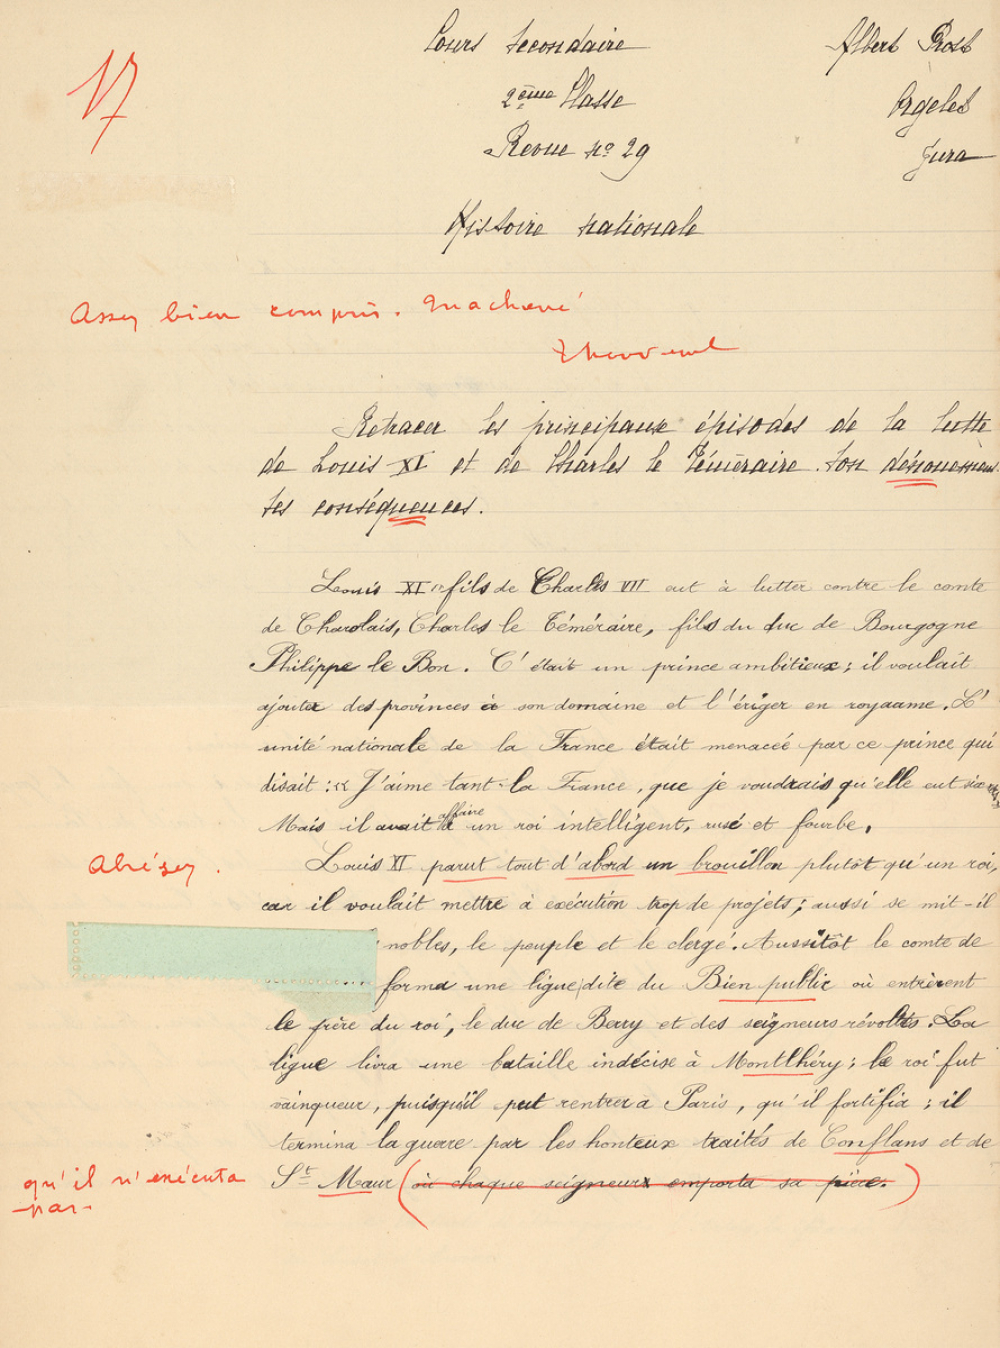 17
Cours secondaire
Albert Prost
2ème Classe
Orgelet
Revue No 29
Jura
Histoire nationale
Assez bien compris. Inachevé
Retracer les principaux épisodes de la lutte
de Louis XI et de Charles le Téméraire. Son dénouement.
Ses conséquences.
Louis XI fils de Charles VII eut à lutter contre le comte
de Charolais, Charles le Téméraire, fils du duc de Bourgogne
Philippe le Bon. C'était un prince ambitieux; il voulait
ajouter des provinces à son domaine et l'ériger en royaume. L'
unité nationale de la France était menacée par ce prince qui
disait : « J'aime tant la France, que je voudrais qu'elle eut six
affaire
Mais il avait à un roi intelligent, rusé et fourbe.
Abrégez.
Louis XI parut tout d'abord un brouillon plutôt qu'un roi,
car il voulait mettre à exécution trop de projets; aussi se mit-il
nobles, le peuple et le clergé. Aussitôt le comte de
forma une ligue dite du Bien public où entrèrent
le frère du roi, le duc de Berry et des seigneurs révoltés. La
ligue livra une bataille indécise à Montlhéry; le roi fut
vainqueur, puisqu'il put rentrer à Paris, qu'il fortifia; il
termina la guerre par les honteux traités de Conflans et de
qu'il n'exécuta
pas
St Maur (où chaque seigneur emporta sa pièce.)